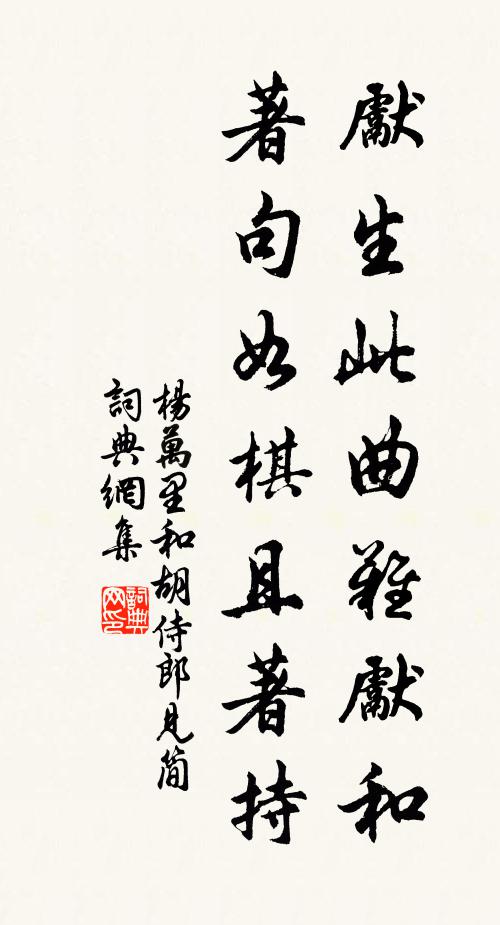 獻生此曲難獻和
著句如棋且著持
楊萬里和胡侍郎見简
詞典網集
詞典
网印